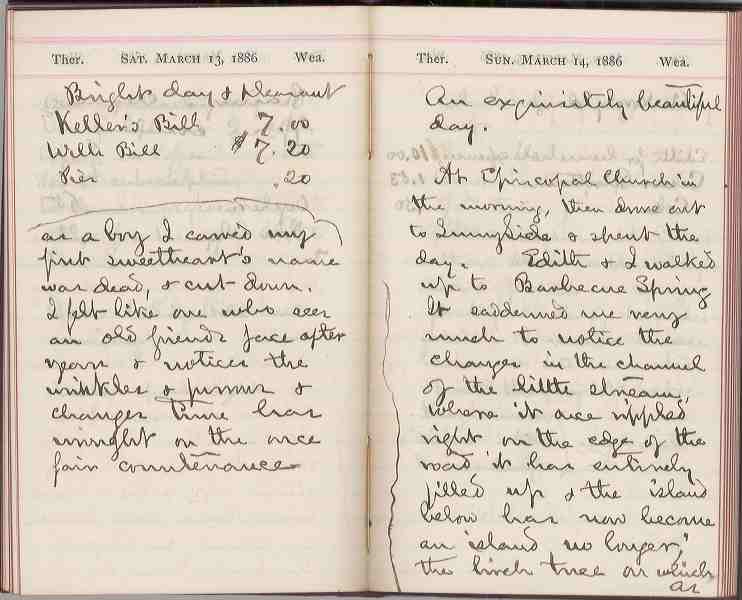 Ther. SAT. MARCH 13, 1886 Wea.
Bright day & pleasant
Keller's Bill 7.00
Will Bill $7.20
Pier .20
as a boy I carved my
first sweetheart's name
was dead, & cut down.
I felt like one who sees
an old friends face after
years & notices the
wrinkles & furrows &
changes time has
wrought on the once
fair countenance
Ther. SUN. MARCH 14, 1886 Wea.
An exquisitely beautiful
day.
At Episcopal Church in
the morning, then drove out
to Sunnyside & spent the
day. Edith & I walked
up to Barbecue Spring
It saddened me very
much to notice the
changes in the channel
of the little stream,
where it once rippled
right on the edge of the
road it has entirely
filled up & the island
below has now become
an "island no longer,"
the birch tree on which
as